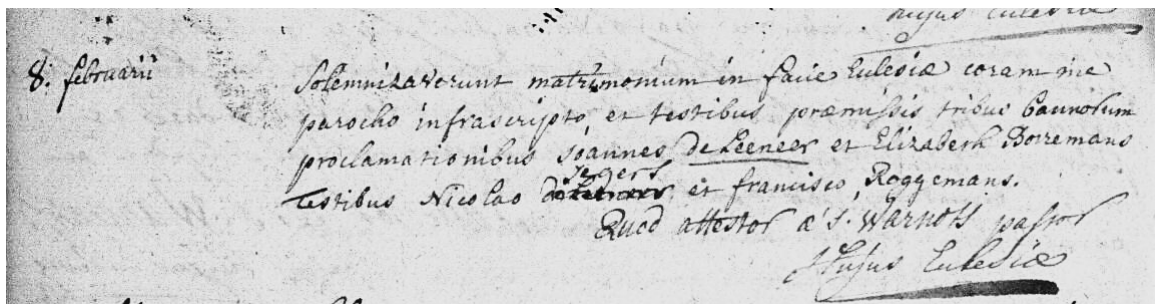 hujus Eclesiæ
8: februarii
Solemnizaverunt matrimonium in facie Eclesiæ coram me
parocho infrascripto, et testibus præmissis tribus bannorum
proclamationibus Joannes de Leeneer et Elizabeth Borremans
Segers
Testibus Nicolao et francisco Roggemans.
Quod attestor A J. Warnots pastor
Hujus Eclesiæ